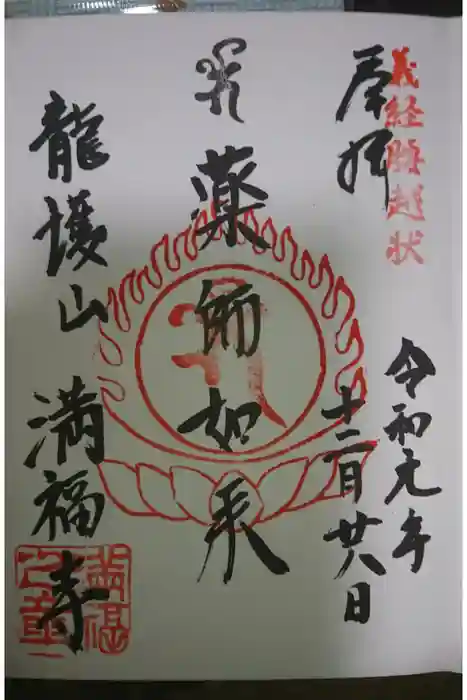 義経腰越状
奉拝
令和元年
十二月廿八日
薬師如来
龍護山
満福寺
満福
之章